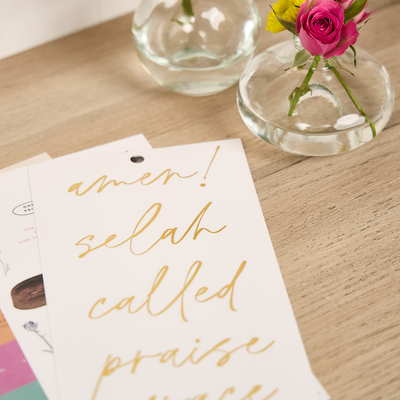 amen!
selah
called
praise